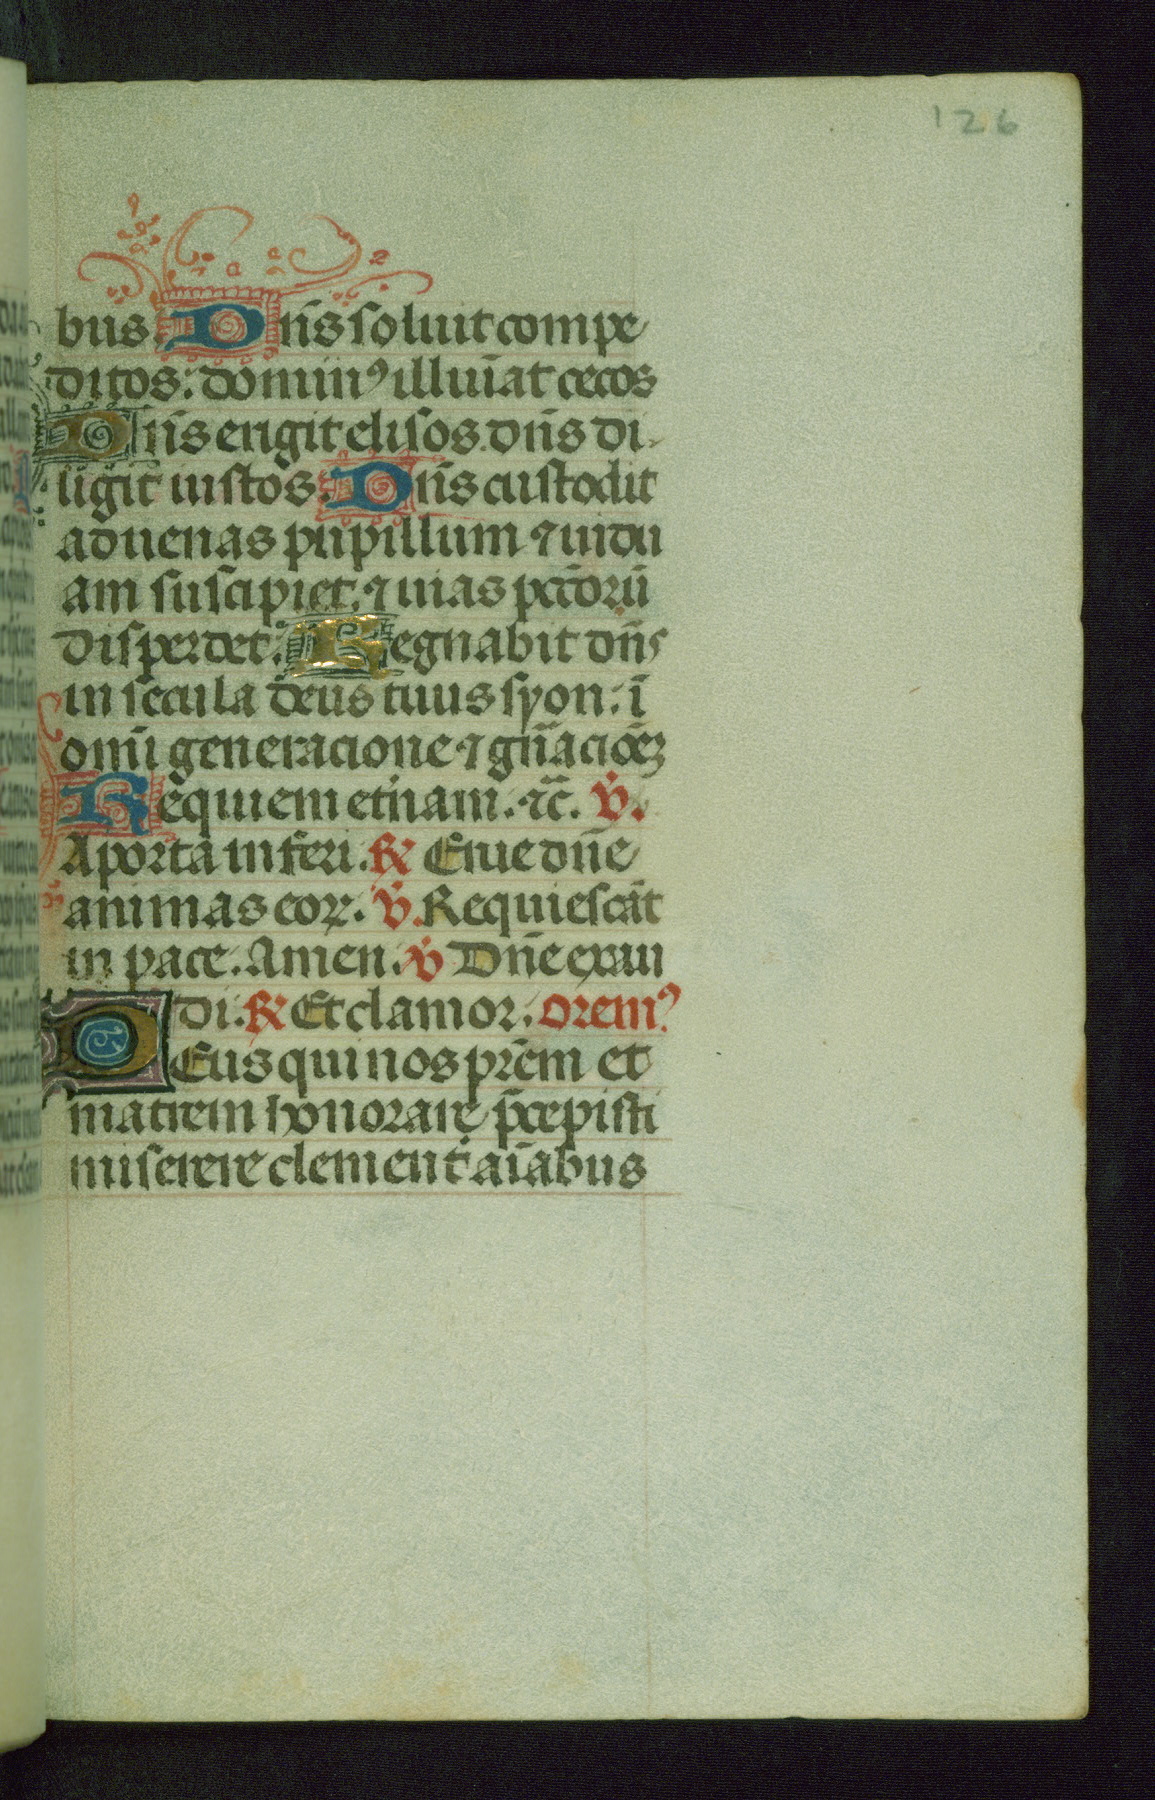 126
bus. Dn̄s soluit compe
ditos: dominꝰ illuīat cecos
Dn̄s erigit elisos. dn̄s di
ligit iustos. Dn̄s custodit
aduenas pupillum ⁊ uidu
am suscipiet. ⁊ uias pcc̄orū
disperdet. Regnabit dn̄s
in secula deus tuus syon: ī
omī generacione ⁊ gn̄acioēꝫ
Requiem et̄nam. ⁊c̄. V̄.
A porta inferi. ꝶ Erue dn̄e
animas eoꝝ. V̄. Requiescāt
in pace. Amen. V̄ Dn̄e exau
di. ꝶ Et clamor. oremꝰ.
DEus qui nos pr̄em et
matrem honorare p̄cepisti
miserere clement̄ aīabus